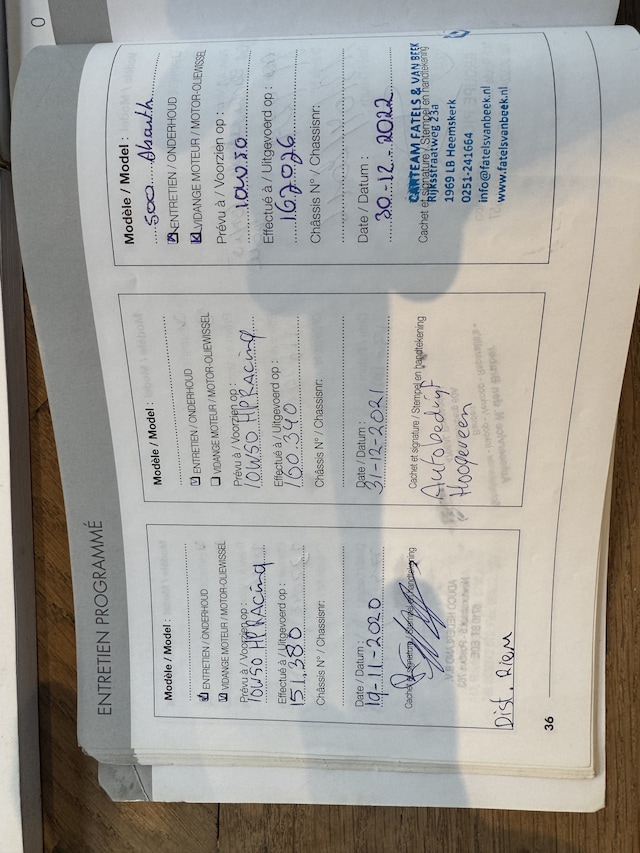 ENTRETIEN PROGRAMMÉ
Modèle / Model :
ENTRETIEN / ONDERHOUD
VIDANGE MOTEUR / MOTOR-OLIEWISSEL
Prévu à / Voorzien op :
10W50 HPRACing
Effectué à / Uitgevoerd op :
151.380
Châssis N° / Chassisnr:
Date / Datum :
19-11-2020
Cachet et signature / Stempel en handtekening
Dist. Riem
36
Modèle / Model :
ENTRETIEN / ONDERHOUD
VIDANGE MOTEUR / MOTOR-OLIEWISSEL
Prévu à / Voorzien op :
10W50 HPRACing
Effectué à / Uitgevoerd op :
160.340
Châssis N° / Chassisnr:
Date / Datum :
31-12-2021
Cachet et signature / Stempel en handtekening
Autobedrijf
Hoogeveen
Modèle / Model :
500 Abarth
ENTRETIEN / ONDERHOUD
VIDANGE MOTEUR / MOTOR-OLIEWISSEL
Prévu à / Voorzien op :
10W50
Effectué à / Uitgevoerd op :
167026
Châssis N° / Chassisnr:
Date / Datum :
30-12-2022
CARTEAM FATELS & VAN BEEK
Cachet et signature / Stempel en handtekening
Rijksstraatweg 23a
1969 LB Heemskerk
0251-241664
info@fatelsvanbeek.nl
www.fatelsvanbeek.nl
0